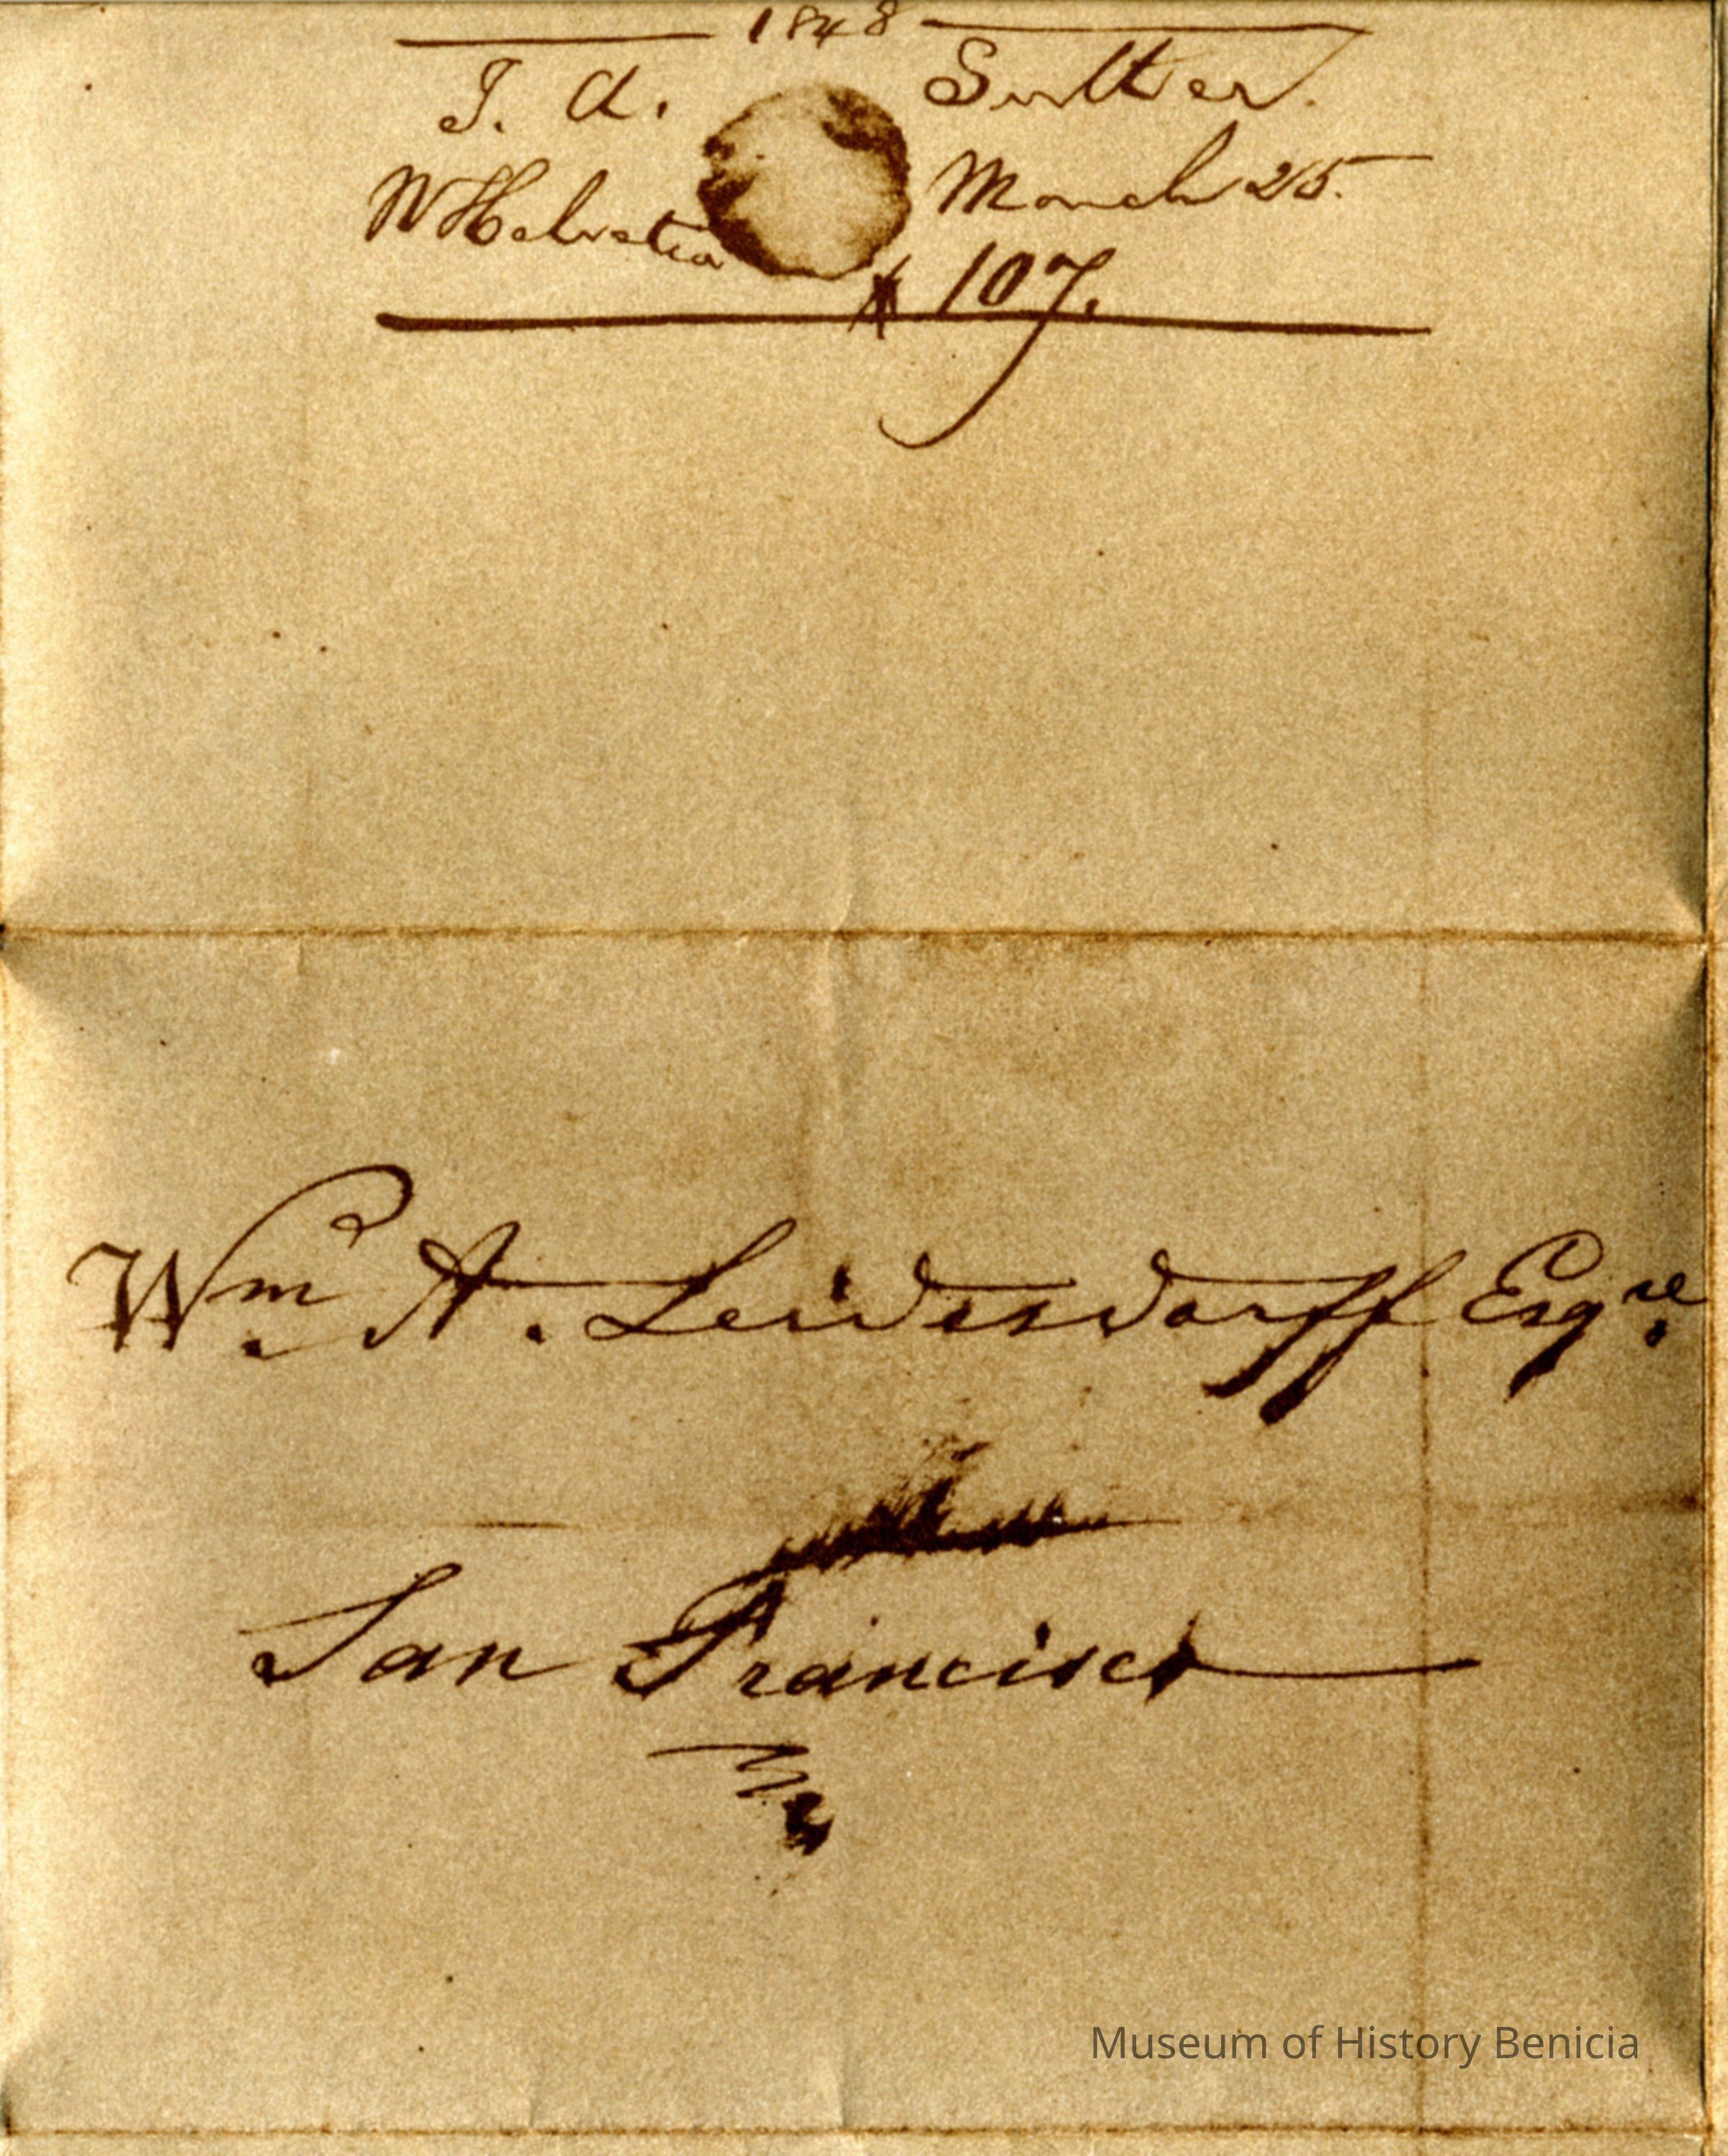 1848
J. A. Sutter.
N Helvetia March 25.
# 107.
Wm A. Leidesdorff Esqre.
San Francisco
Museum of History Benicia